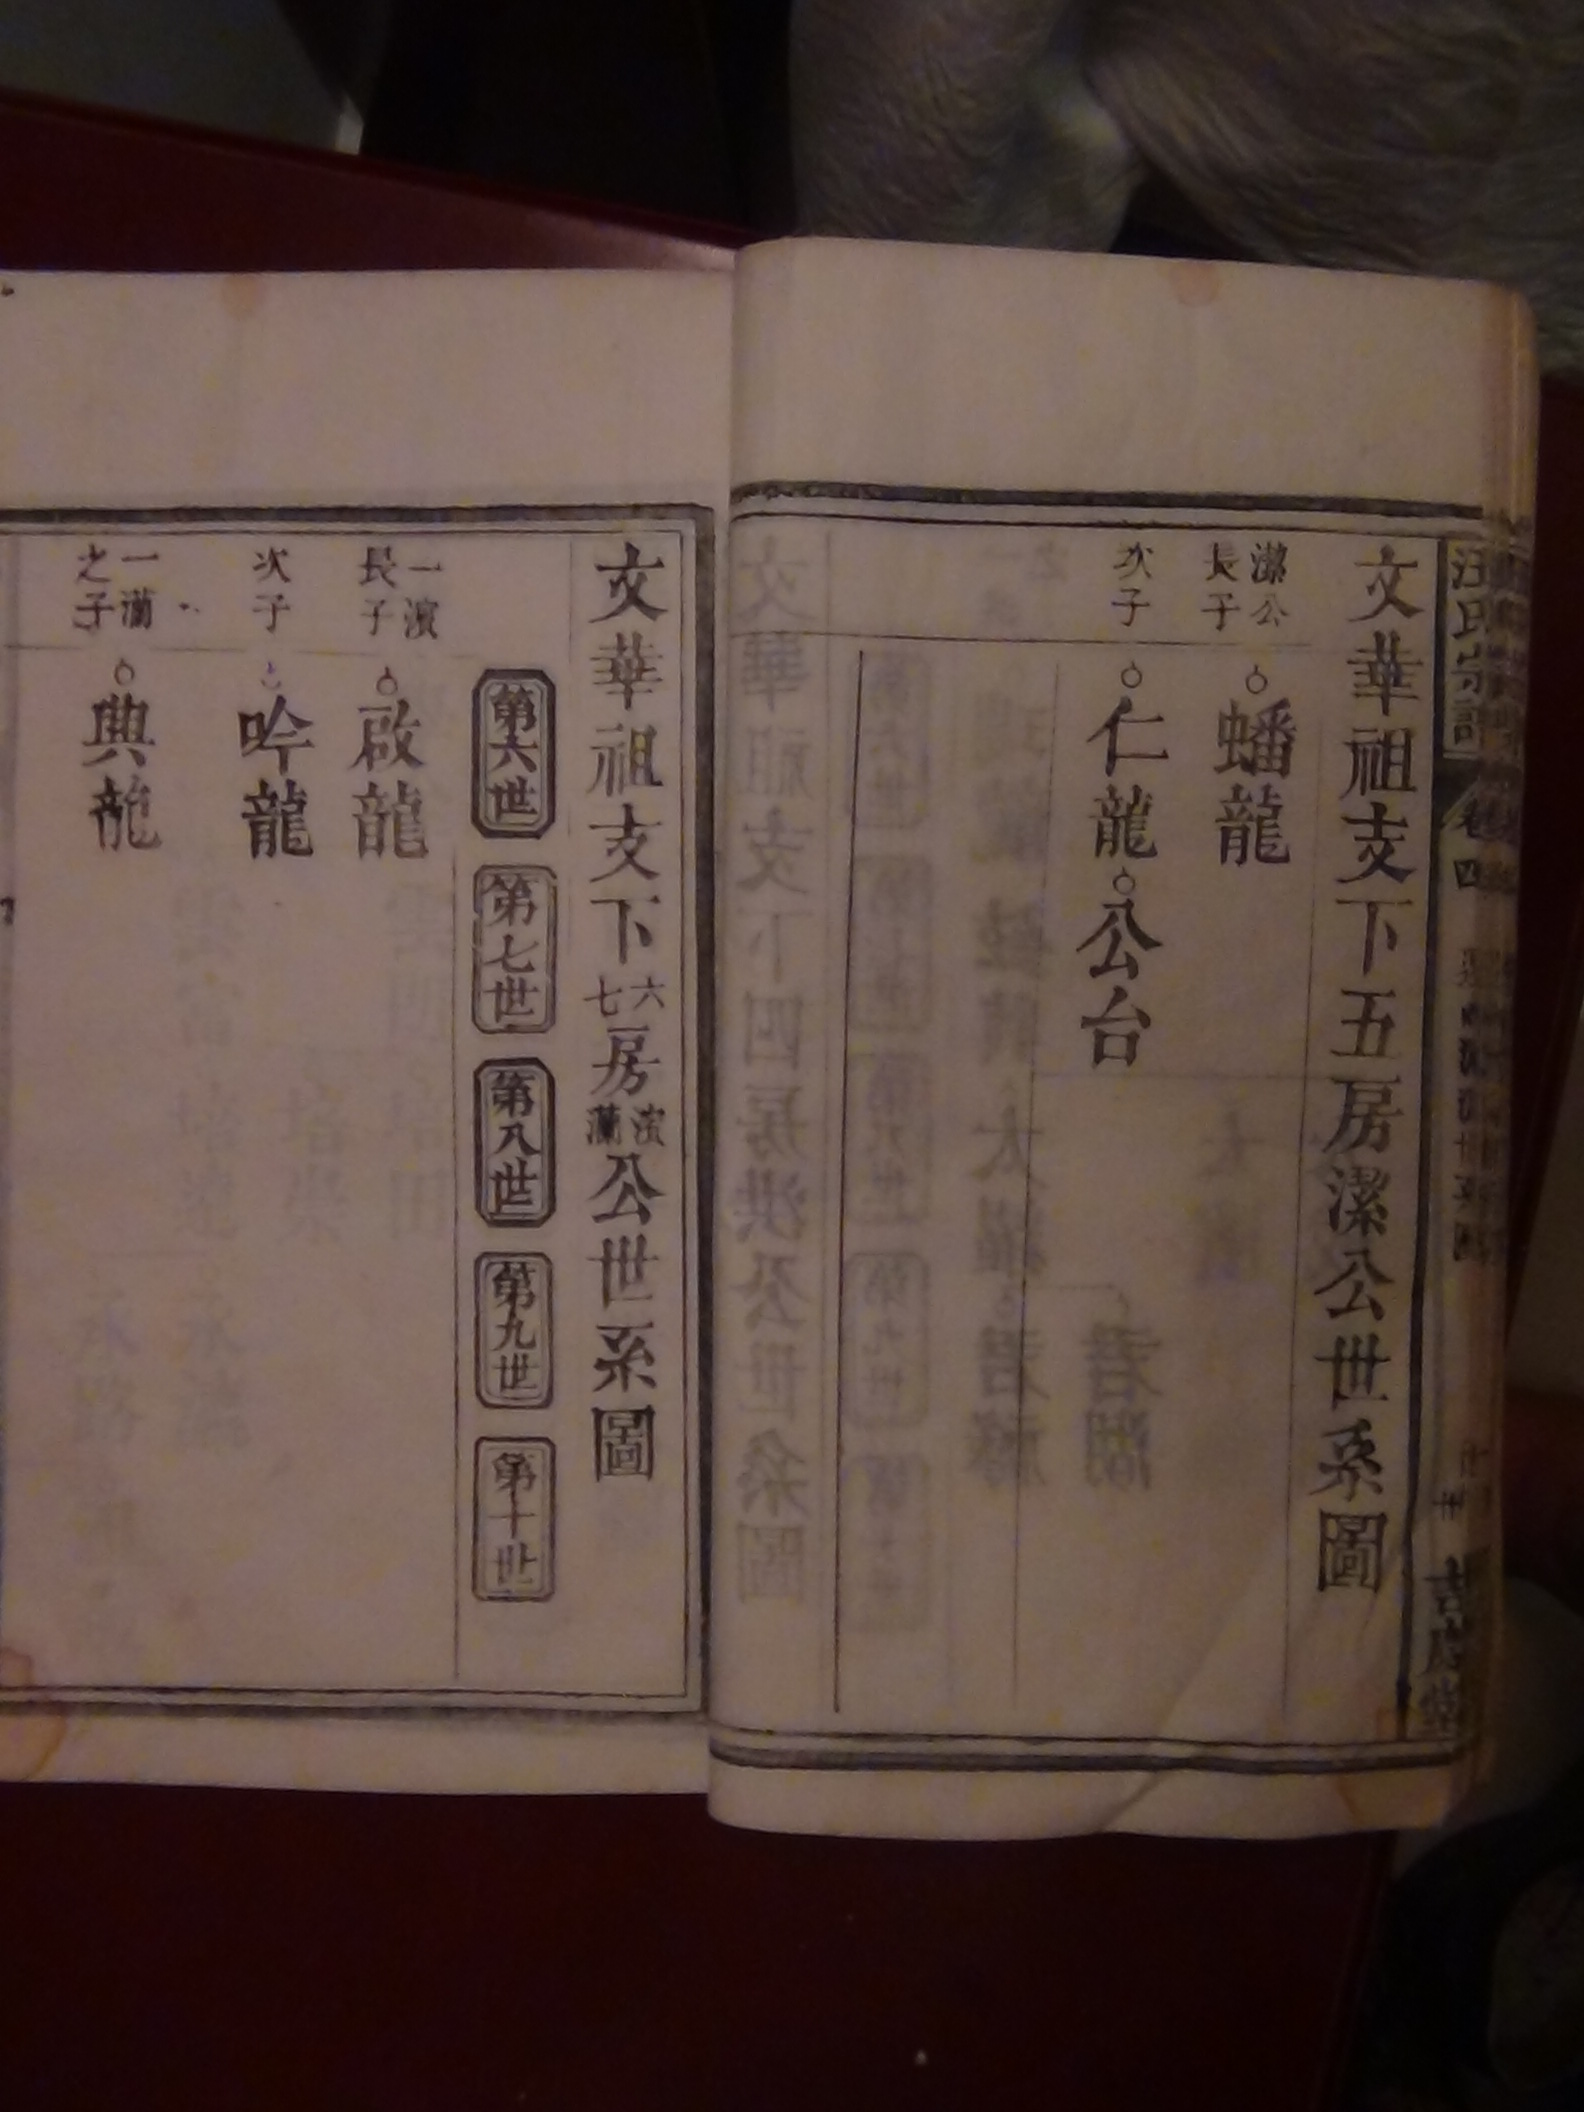 汪氏宗譜
卷四
文華祖支下五房潔公世系圖
潔公
長子
蟠龍
次子
仁龍 公台
文華祖支下六七房濱瀾公世系圖
第六世
第七世
第八世
第九世
第十世
一濱
長子
啟龍
次子
吟龍
一瀾
之子
典龍